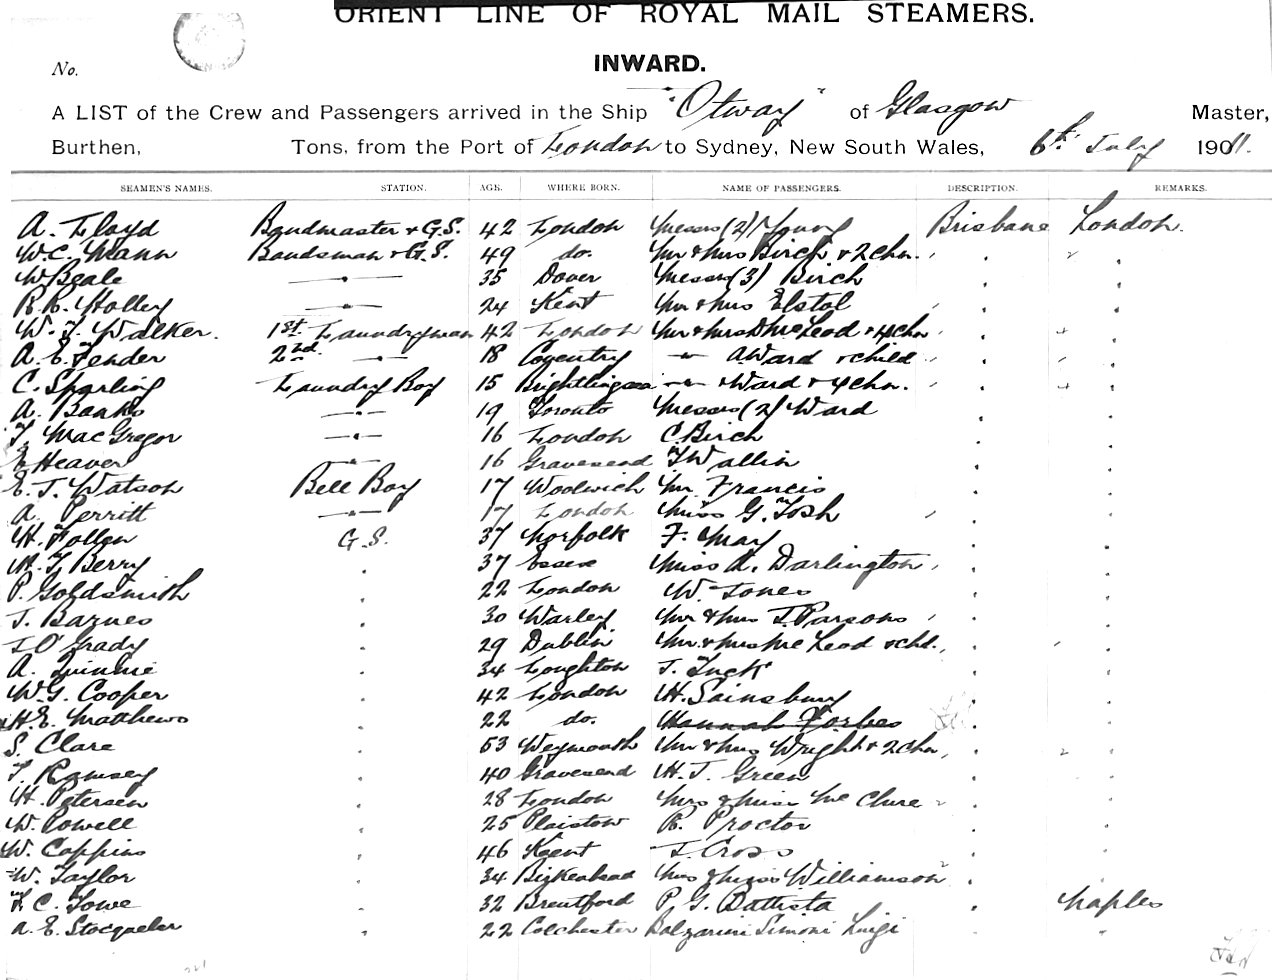 ORIENT LINE OF ROYAL MAIL STEAMERS.
INWARD.
No.
A LIST of the Crew and Passengers arrived in the Ship "Otway" of Glasgow Master,
Burthen, Tons, from the Port of London to Sydney, New South Wales, 6th July 1911.
SEAMEN'S NAMES. STATION. AGE. WHERE BORN. NAME OF PASSENGERS. DESCRIPTION. REMARKS.
A. Floyd Bandmaster & G.S. 42 London Messrs (2) Young Brisbane London.
W.C. Mann Bandsman & G.S. 49 do. Mr & Mrs Birch & 2 Chn. " "
W Beale —"— 35 Dover Messrs (3) Birch " "
R.R. Holley —"— 24 Kent Mr & Mrs Elstol " "
W. J. Walker. 1st Laundryman 42 London Mr & Mrs McLeod & 4 Chn " "
A. E. Fender 2nd —"— 18 Coventry —"— A Ward & child " "
C. Sparling Laundry Boy 15 Brightlingsea —"— Ward & 4 Chn. " "
A. Banks —"— 19 Toronto Messrs (2) Ward " "
J. MacGregor —"— 16 London C. Birch " "
E Heaver —"— 16 Gravesend J Wallin " "
E. J. Watson Bell Boy 17 Woolwich Mr. Francis " "
A. Perritt —"— 17 London Miss G. Tosh " "
H. Follen G.S. 37 Norfolk F. May " "
H. J. Berry " 37 Essex Miss A. Darlington " "
P. Goldsmith " 22 London W. Jones " "
J. Barnes " 30 Warley Mr & Mrs J. Parsons " "
J O'Grady " 29 Dublin Mr & Mrs McLeod & chd. " "
A. Quinnie " 34 Loughton J. Tuck " "
W.G. Cooper " 42 London H. Sainsbury " "
H.E. Matthews " 22 do. Hannah Forbes " "
S. Clare " 53 Weymouth Mr & Mrs Wright & 2 Chn " "
J. Ramsey " 40 Gravesend H. J. Green " "
H. Petersen " 28 London Mrs & Miss McClure " "
W. Powell " 25 Plaistow R. Proctor " "
W. Coppins " 46 Kent J. Cross " "
W. Taylor " 34 Birkenhead Mrs & Miss Williamson " "
C. Towe " 32 Brentford P. G. Battista " Naples
A. E. Stocqueler " 22 Colchester Balzarini Simoni Luigi " "